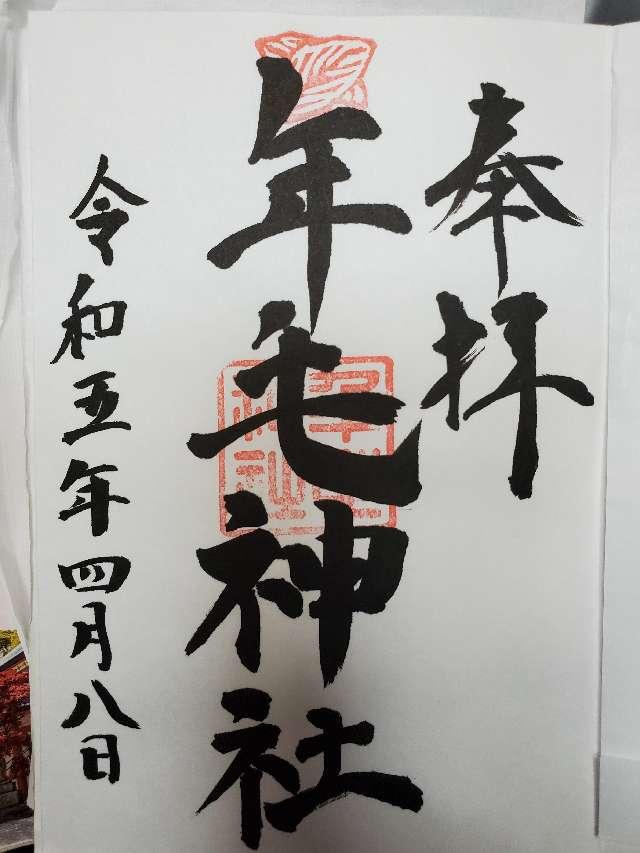 奉拝
年毛神社
令和五年四月八日